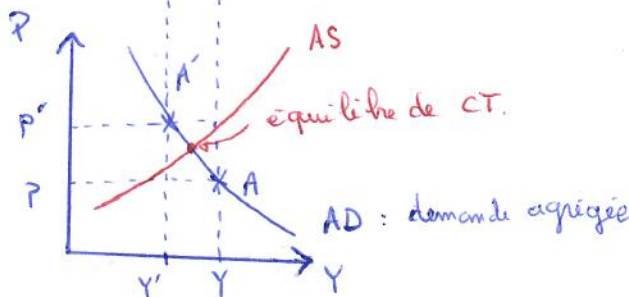 P
AS
A'
équilibre de CT.
P'
P
A
AD : demande agrégée
Y' Y Y